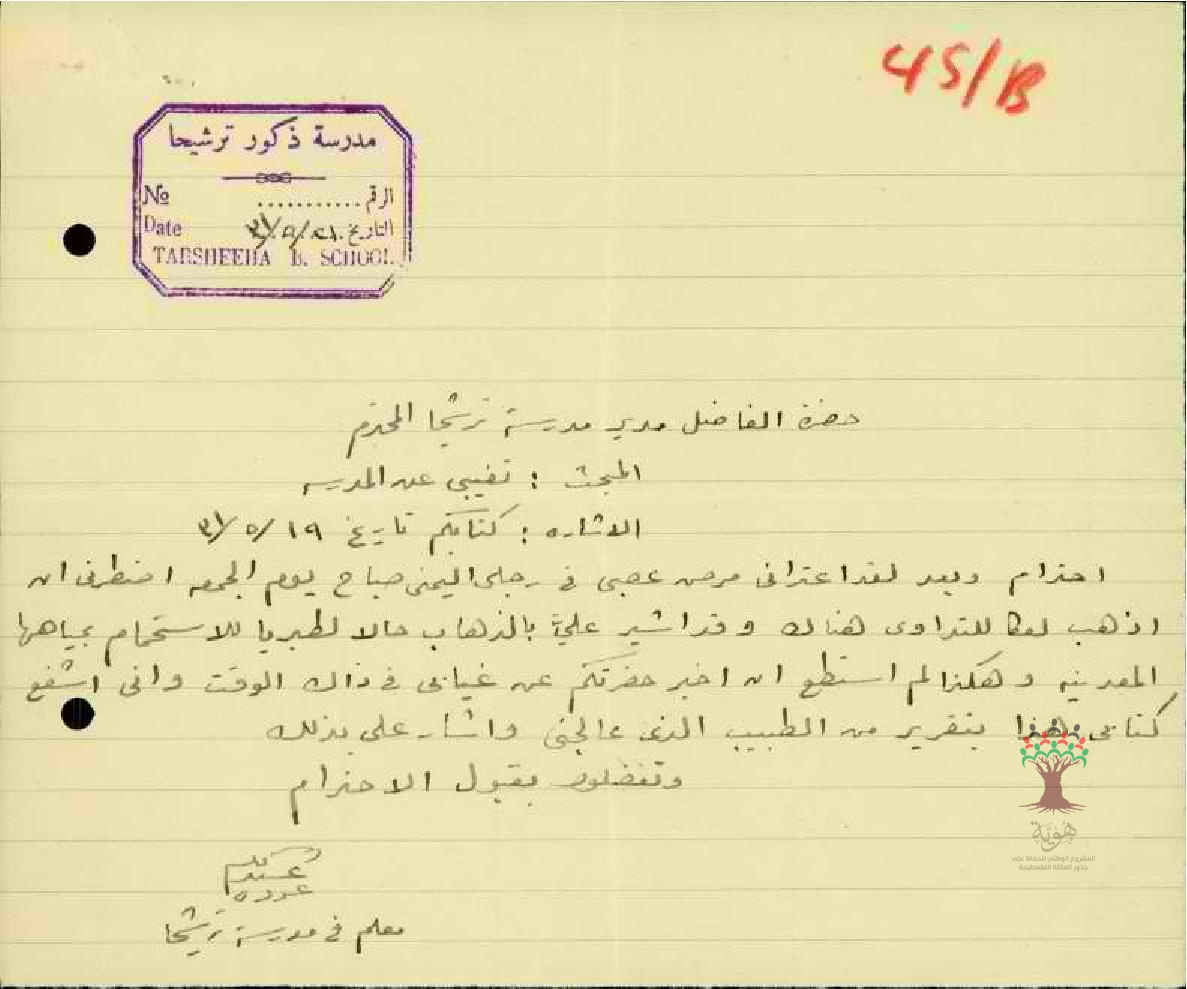 45/B
مدرسة ذكور ترشيحا
№ ........... الرقم
Date التاريخ
TARSHEEHA B. SCHOOL
حضرة الفاضل مدير مدرسة ترشيحا المحترم
المبحث : تغيبي عن المدرسه
الاشاره : كتابكم تاريخ ١٩/٥/٣١
احترام وبعد لقد اعتراني مرض عصبي في رجلي اليمنى صباح يوم الجمعه اضطرني ان
اذهب لعكا للتداوى هناك وقد اشير عليّ بالذهاب حالا لطبريا للاستحمام بمياهها
المعدنيه وهكذا لم استطع ان اخبر حضرتكم عن غيابي في ذاك الوقت واني اشفع
كتابي هذا بتقرير من الطبيب الذي عالجني واشار علي بذلك
وتفضلوا بقبول الاحترام
عوده
معلم في مدرسة ترشيحا
هُويّة
المشروع الوطني للحفاظ على
جذور العائلة الفلسطينية